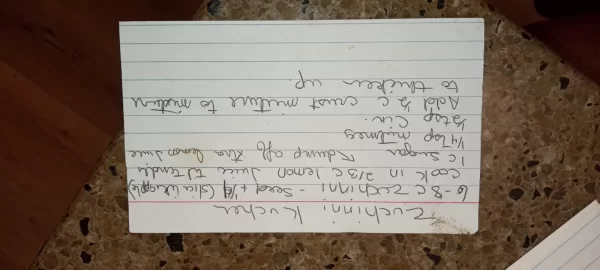 Zuchini Kuchen
6-8 C Zuchini - Seed + 1/4 (slic like apple)
cook in 2/3 C lemon Juice Til Tender
1 C sugar *dump off xtra lemon Juice
1/4 Tsp nutmeg
1/2 tsp Cin.
Add 1/2 C crust mixture to mixture
to thicken up.